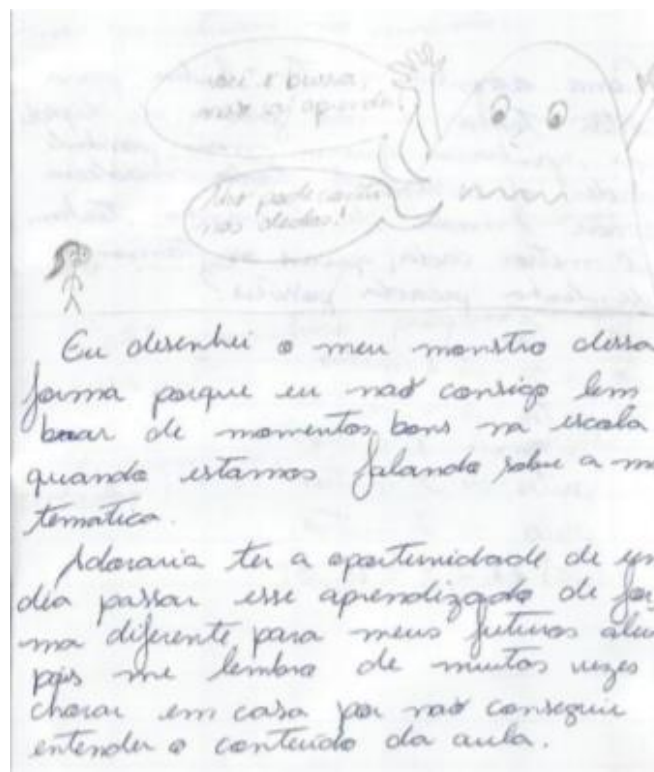 você é burra,
nunca aprende!
Não pode contar
nos dedos!
Eu desenhei o meu monstro dessa
forma porque eu não consigo lem
brar de momentos bons na escola
quando estamos falando sobre a ma
temática.
Adoraria ter a oportunidade de um
dia passar esse aprendizado de for
ma diferente para meus futuros alu
pois me lembro de muitas vezes
chorar em casa por não conseguir
entender o conteúdo da aula.